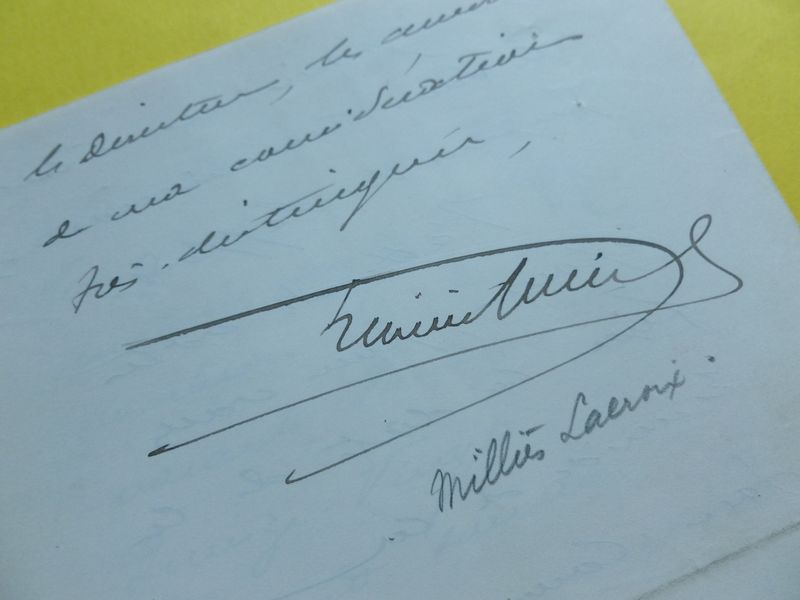 le directeur, les assur
de ma considération
très distinguée,
Milliès Lacroix.